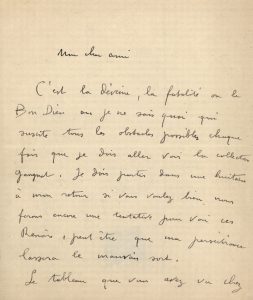 Mon cher ami
C'est la déveine, la fatalité ou le
Bon Dieu ou je ne sais quoi qui
suscite tous les obstacles possibles chaque
fois que je dois aller voir la collection
Gangnat. Je dois partir dans une huitaine
à mon retour si vous voulez bien nous
ferons encore une tentative pour voir ces
Renoirs, peut être que ma persévérance
lassera le mauvais sort.
Le tableau que vous avez vu chez